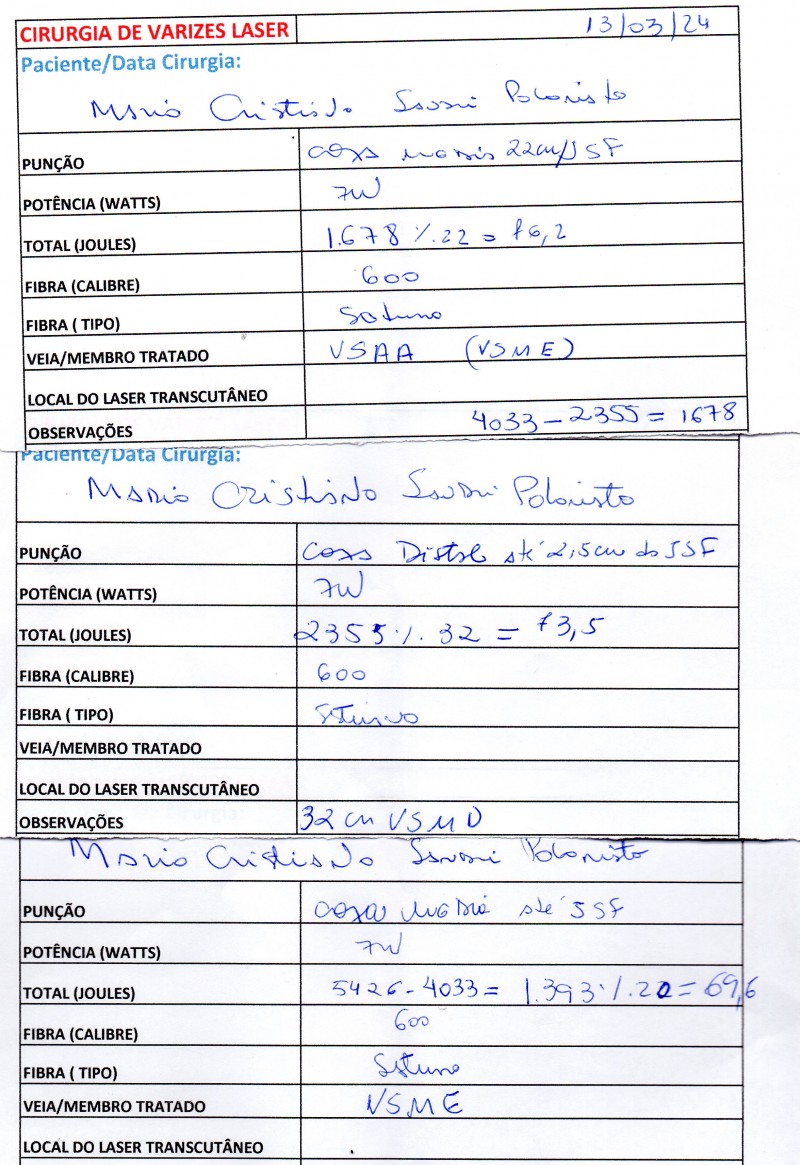 CIRURGIA DE VARIZES LASER 13/03/24
Paciente/Data Cirurgia:
Mario Cristiano Polonisto
PUNÇÃO coxa 22cm JSF
POTÊNCIA (WATTS) 7W
TOTAL (JOULES) 1.678 %. 22 = 76,2
FIBRA (CALIBRE) 600
FIBRA ( TIPO) Saturno
VEIA/MEMBRO TRATADO VSAA (VSME)
LOCAL DO LASER TRANSCUTÂNEO
OBSERVAÇÕES 4033 - 2355 = 1678
Paciente/Data Cirurgia:
Mario Cristiano Polonisto
PUNÇÃO coxa Distal até 2,5cm da JSF
POTÊNCIA (WATTS) 7W
TOTAL (JOULES) 2355 %. 32 = 73,5
FIBRA (CALIBRE) 600
FIBRA ( TIPO) Saturno
VEIA/MEMBRO TRATADO
LOCAL DO LASER TRANSCUTÂNEO
OBSERVAÇÕES 32 cm VSMD
Mario Cristiano Polonisto
PUNÇÃO coxa media até JSF
POTÊNCIA (WATTS) 7W
TOTAL (JOULES) 5426 - 4033 = 1.393 %. 20 = 69,6
FIBRA (CALIBRE) 600
FIBRA ( TIPO) Saturno
VEIA/MEMBRO TRATADO VSME
LOCAL DO LASER TRANSCUTÂNEO